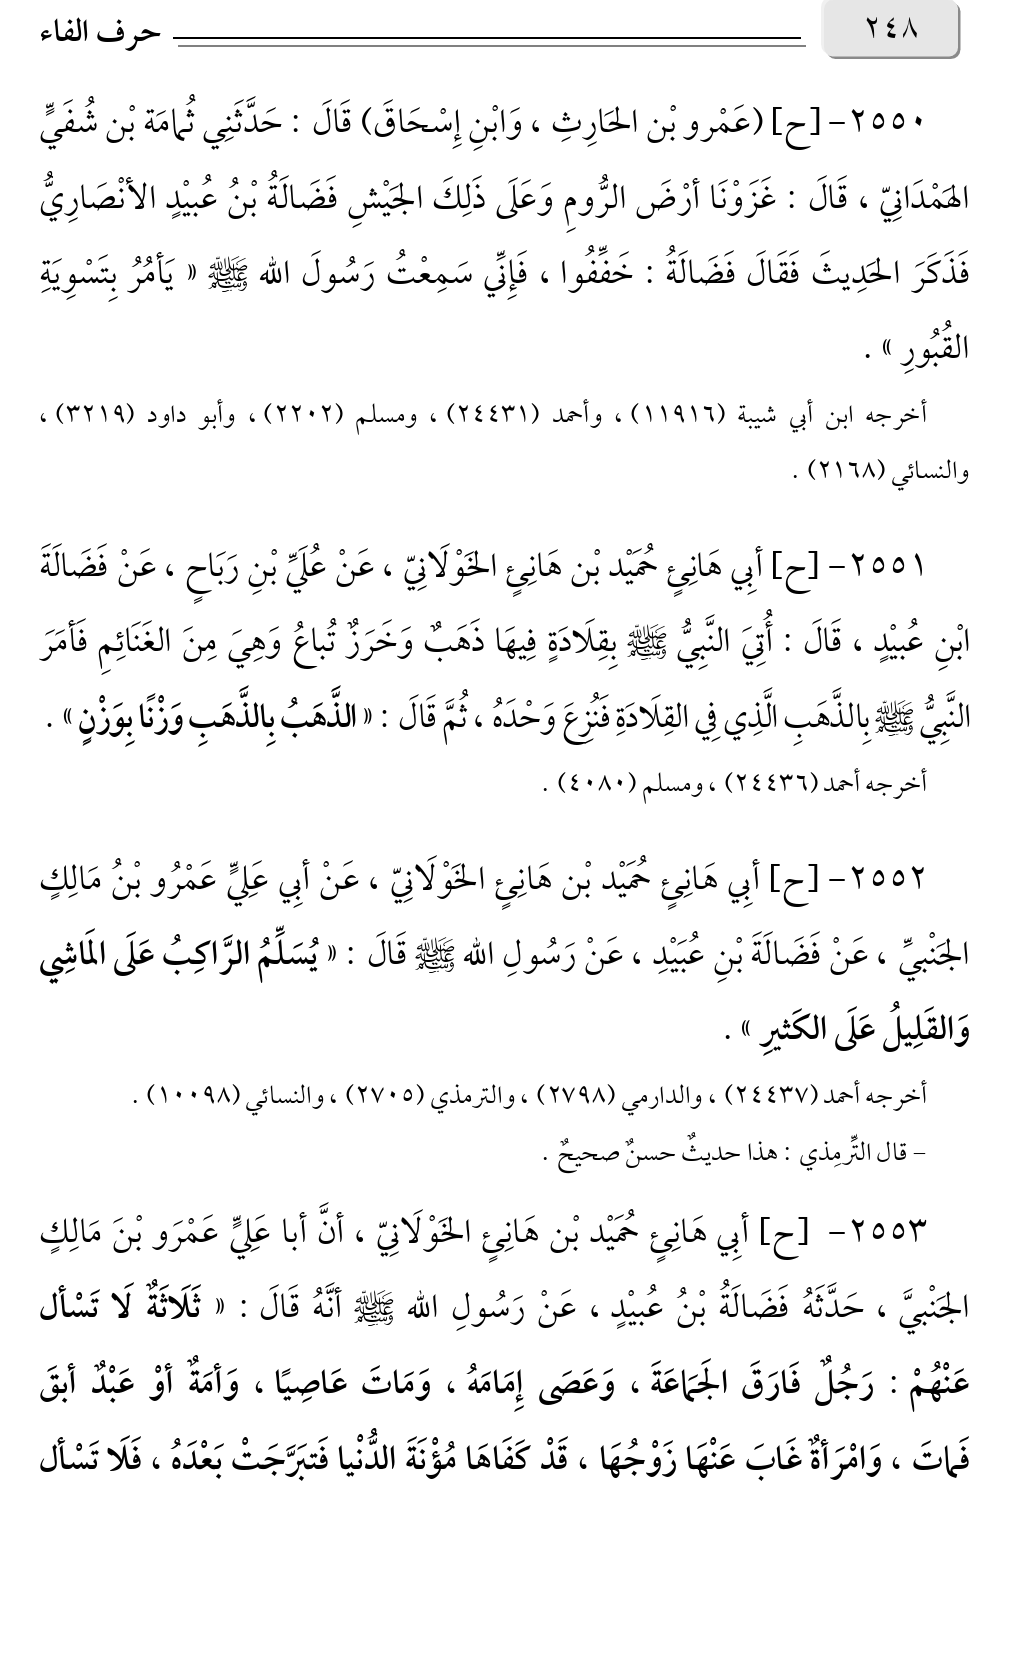 ٢٤٨ حرف الفاء
٢٥٥٠- [ح] (عَمْرو بْن الحَارِثِ ، وَابْنِ إِسْحَاقَ) قَالَ : حَدَّثَنِي ثُمامَة بْن شُفَيٍّ
الهَمْدَانِيّ ، قَالَ : غَزَوْنَا أرْضَ الرُّومِ وَعَلَى ذَلِكَ الجَيْشِ فَضَالَةُ بْنُ عُبيْدٍ الأنْصَارِيُّ
فَذَكَرَ الحَدِيثَ فَقَالَ فَضَالَةُ : خَفِّفُوا ، فَإِنِّي سَمِعْتُ رَسُولَ الله ﷺ « يَأمُرُ بِتَسْوِيَةِ
القُبُورِ » .
أخرجه ابن أبي شيبة (١١٩١٦) ، وأحمد (٢٤٤٣١) ، ومسلم (٢٢٠٢) ، وأبو داود (٣٢١٩) ،
والنسائي (٢١٦٨) .
٢٥٥١- [ح] أبِي هَانِئٍ حُمَيْد بْن هَانِئٍ الخَوْلَانِيّ ، عَنْ عُلَيِّ بْنِ رَبَاحٍ ، عَنْ فَضَالَةَ
ابْنِ عُبيْدٍ ، قَالَ : أُتِيَ النَّبِيُّ ﷺ بِقِلَادَةٍ فِيهَا ذَهَبٌ وَخَرَزٌ تُباعُ وَهِيَ مِنَ الغَنَائِمِ فَأمَرَ
النَّبِيُّ ﷺ بِالذَّهَبِ الَّذِي فِي القِلَادَةِ فَنُزِعَ وَحْدَهُ ، ثُمَّ قَالَ : « الذَّهَبُ بِالذَّهَبِ وَزْنًا بِوَزْنٍ » .
أخرجه أحمد (٢٤٤٣٦) ، ومسلم (٤٠٨٠) .
٢٥٥٢- [ح] أبِي هَانِئٍ حُمَيْد بْن هَانِئٍ الخَوْلَانِيّ ، عَنْ أبِي عَلِيٍّ عَمْرُو بْنُ مَالِكٍ
الجَنْبيِّ ، عَنْ فَضَالَةَ بْنِ عُبَيْدِ ، عَنْ رَسُولِ الله ﷺ قَالَ : « يُسَلِّمُ الرَّاكِبُ عَلَى المَاشِي
وَالقَلِيلُ عَلَى الكَثيرِ » .
أخرجه أحمد (٢٤٤٣٧) ، والدارمي (٢٧٩٨) ، والترمذي (٢٧٠٥) ، والنسائي (١٠٠٩٨) .
– قال التِّرمِذي : هذا حديثٌ حسنٌ صحيحٌ .
٢٥٥٣- [ح] أبِي هَانِئٍ حُمَيْد بْن هَانِئٍ الخَوْلَانِيّ ، أنَّ أبا عَلِيٍّ عَمْرَو بْنَ مَالِكٍ
الجَنْبيَّ ، حَدَّثَهُ فَضَالَةُ بْنُ عُبيْدٍ ، عَنْ رَسُولِ الله ﷺ أنَّهُ قَالَ : « ثَلَاثَةٌ لَا تَسْأل
عَنْهُمْ : رَجُلٌ فَارَقَ الجَمَاعَةَ ، وَعَصَى إِمَامَهُ ، وَمَاتَ عَاصِيًا ، وَأمَةٌ أوْ عَبْدٌ أبقَ
فَماتَ ، وَامْرَأةٌ غَابَ عَنْهَا زَوْجُهَا ، قَدْ كَفَاهَا مُؤْنَةَ الدُّنْيا فَتبَرَّجَتْ بَعْدَهُ ، فَلَا تَسْأل